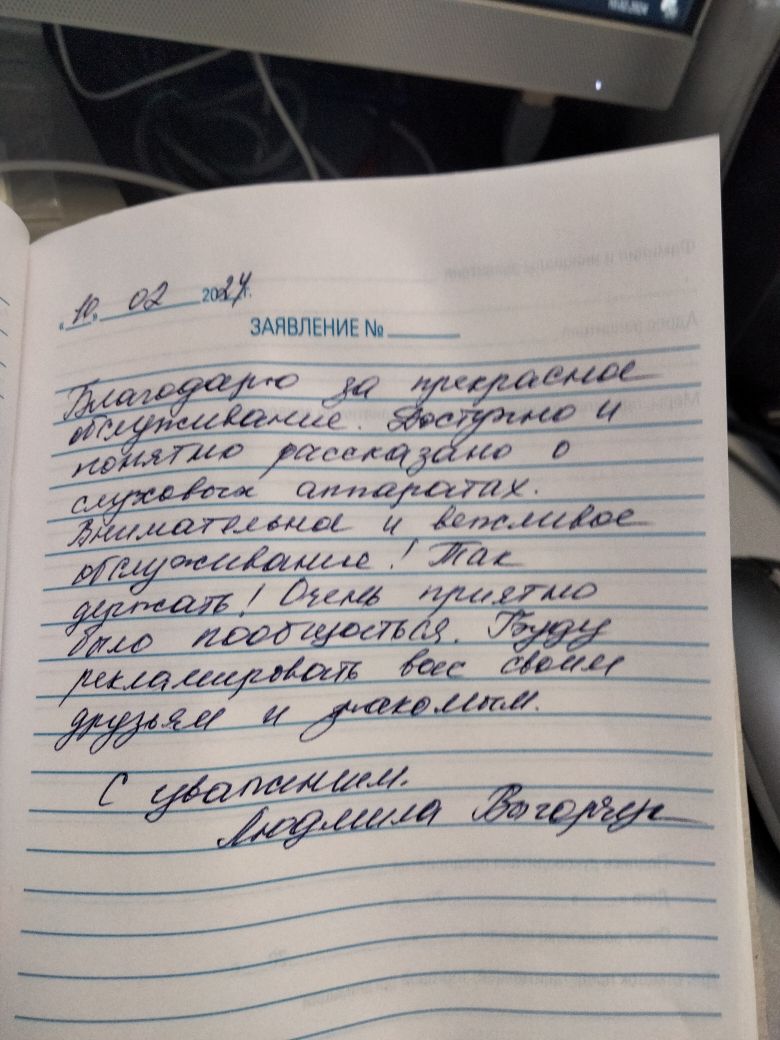 «10» 02 2024г.
ЗАЯВЛЕНИЕ №
Благодарю за прекрасное
обслуживание. Доступно и
понятно рассказано о
слуховых аппаратах.
Внимательное и вежливое
обслуживание! Так
держать! Очень приятно
было пообщаться. Буду
рекламировать вас своим
друзьям и знакомым.
С уважением.
Людмила